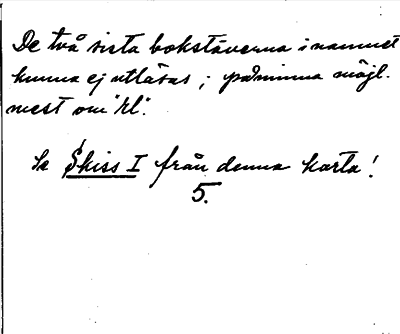 De två sista bokstäverna i namnet
kunna ej utläsas; påminna möjl.
mest om "rl".
Se Skiss I från denna karta!
5.